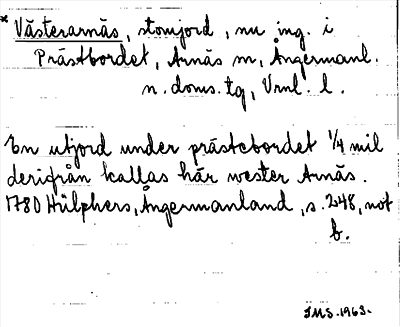 * Västerarnäs, stomjord, nu ing. i
Prästbordet, Arnäs sn, Ångermanl.
n. doms. tg, Vrnl. l.
En utjord under prästebordet 1/4 mil
derifrån kallas här wester Arnäs.
1780 Hülphers, Ångermanland, s. 248, not
b.
JMS. 1963.